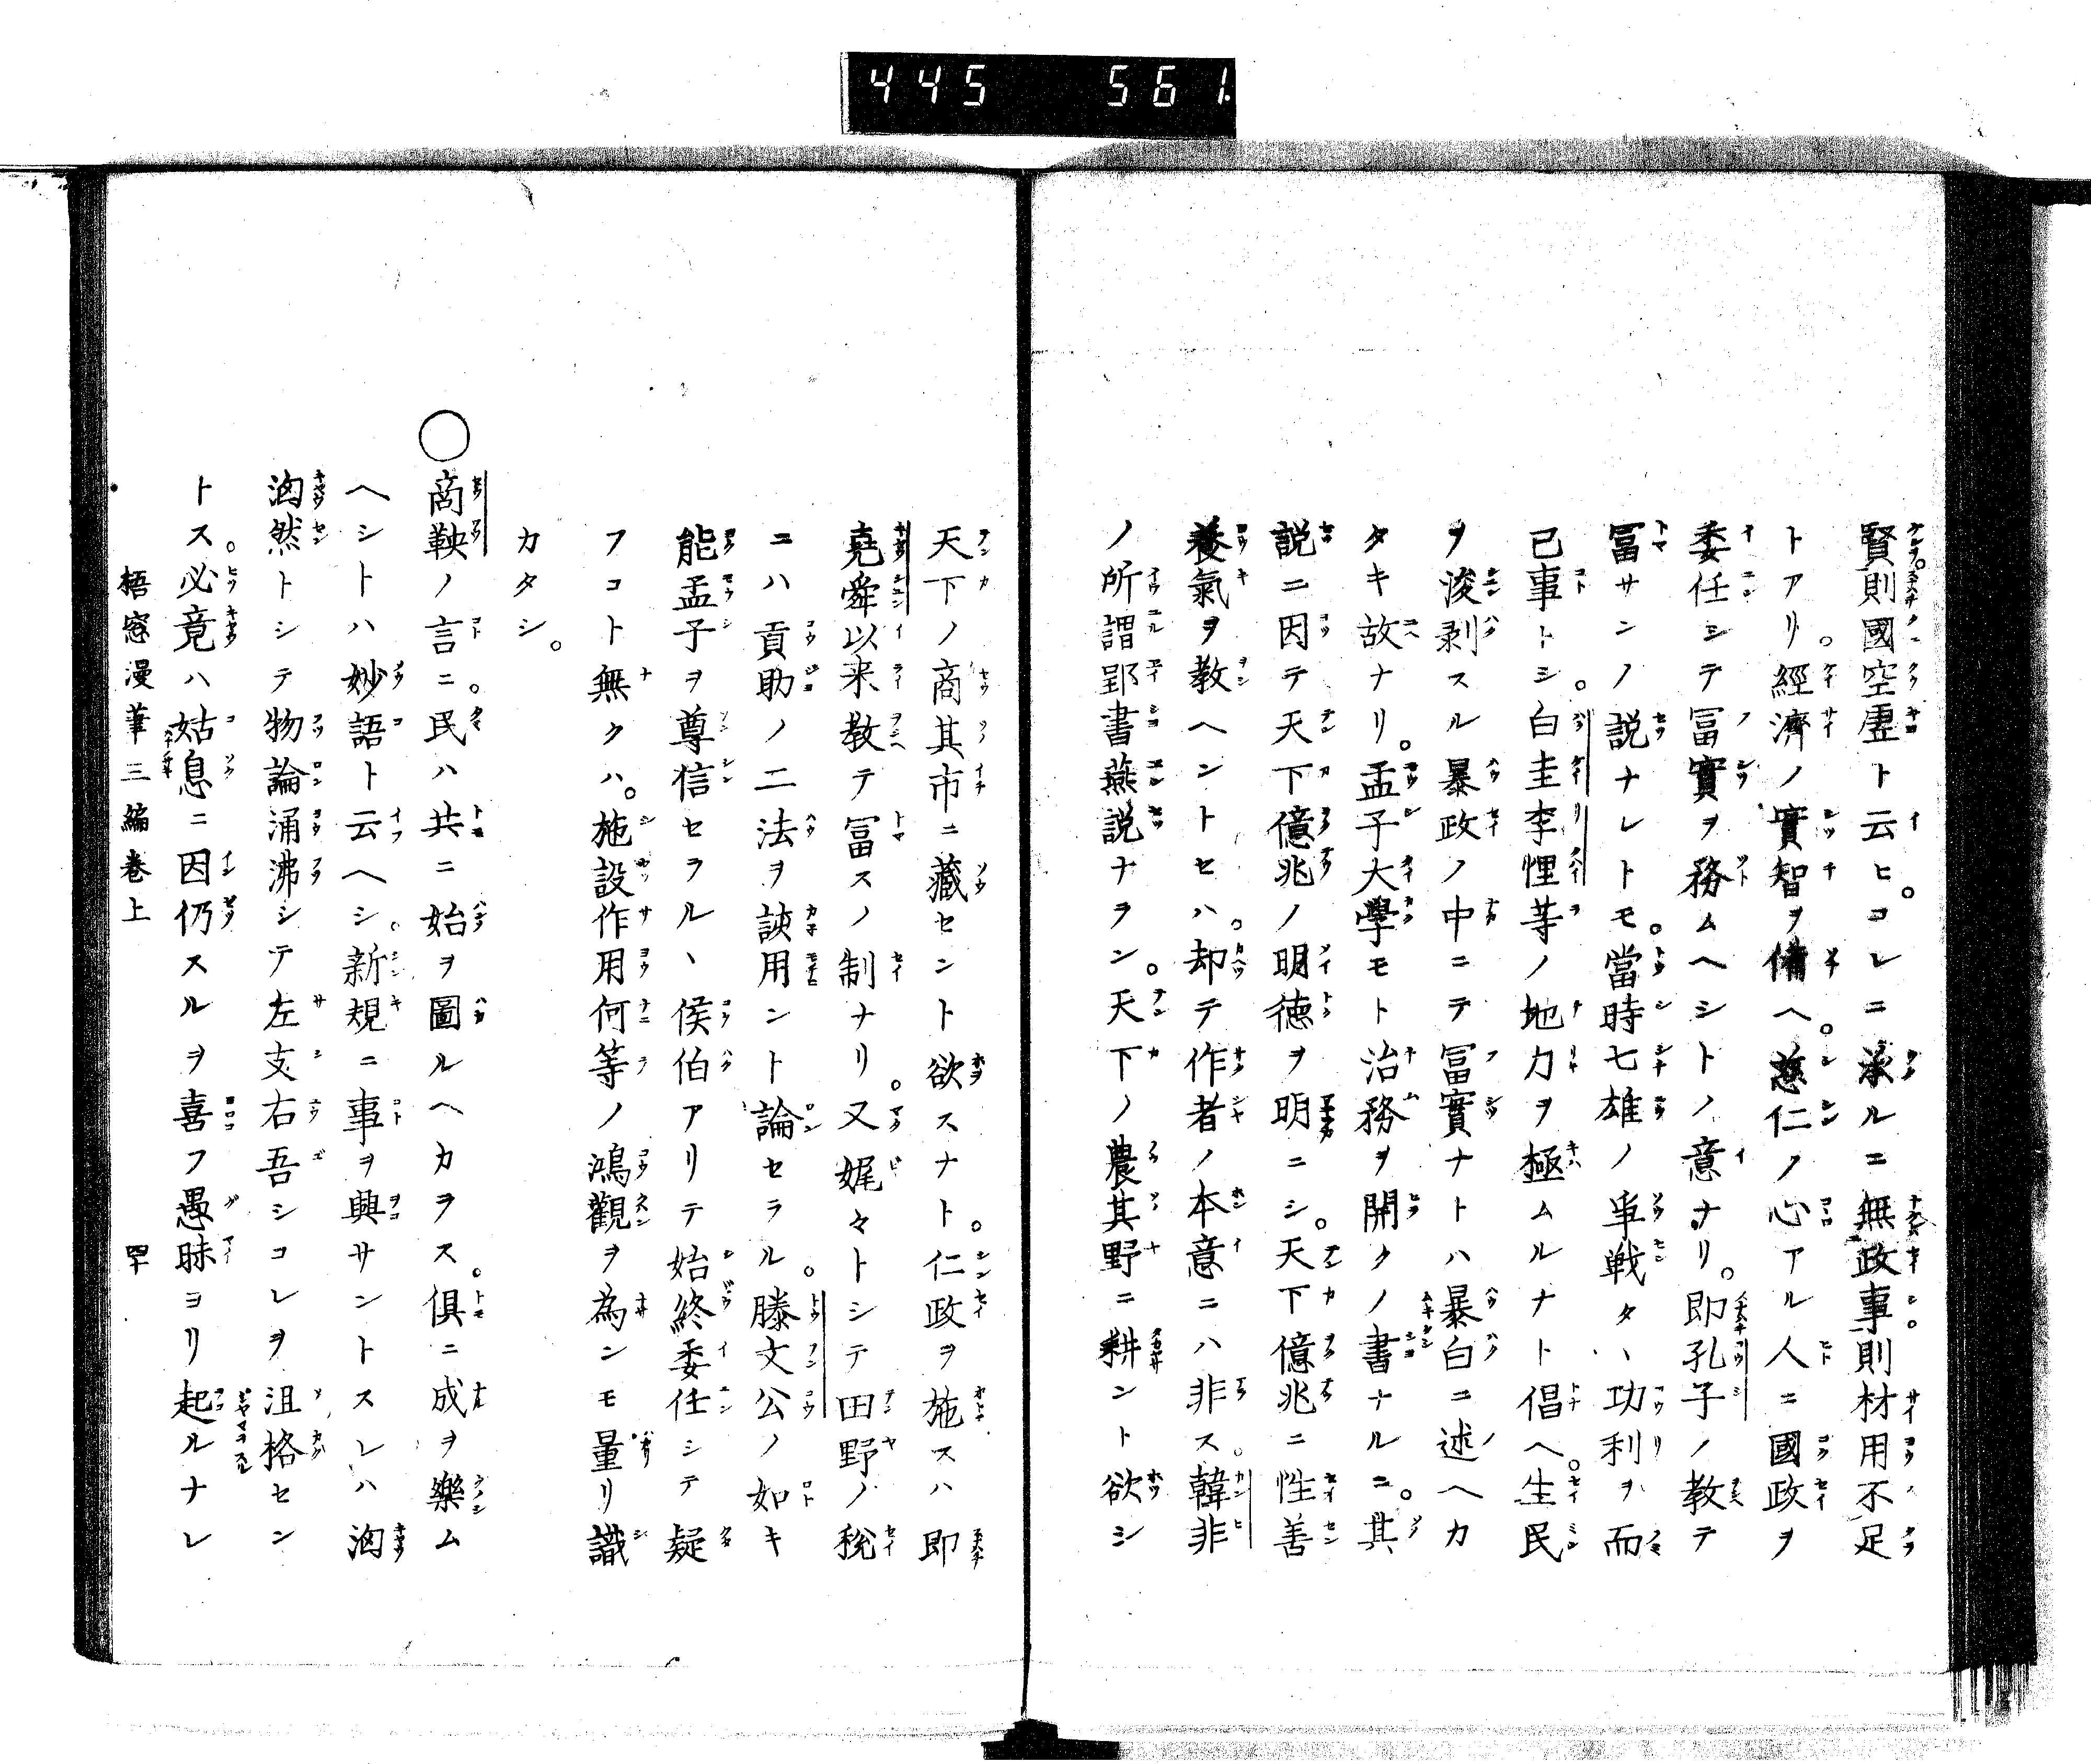 445 561
賢則國空虛ト云ヒ。コレニ承ルニ無政事則材用不足
トアリ。經濟ノ實智ヲ備ヘ。慈仁ノ心アル人ニ國政ヲ
委任シテ冨實ヲ務ムヘシトノ意ナリ。即孔子ノ教テ
冨サンノ説ナレトモ。當時七雄ノ爭戦タヽ功利ヲ而
已事トシ。白圭李悝等ノ地力ヲ極ムルナト倡ヘ。生民
ヲ浚剥スル暴政ノ中ニテ冨實ナトハ暴白ニ述ヘカ
タキ故ナリ。孟子大學モト治務ヲ開クノ書ナルニ。其
説ニ因テ天下億兆ノ明徳ヲ明ニシ。天下億兆ニ性善
養氣ヲ教ヘントセハ。却テ作者ノ本意ニハ非ス。韓非
ノ所謂郢書燕説ナラン。天下ノ農其野ニ耕ント欲シ
天下ノ商其市ニ藏セント欲スナト。仁政ヲ施スハ即
堯舜以来教テ冨スノ制ナリ。又娓々トシテ田野ノ税
ニハ貢助ノ二法ヲ誒用ント論セラル。滕文公ノ如キ
能孟子ヲ尊信セラルヽ侯伯アリテ始終委任シテ疑
フコト無クハ。施設作用何等ノ鴻觀ヲ為ンモ量リ識
カタシ。
○商鞅ノ言ニ。民ハ共ニ始ヲ圖ルヘカヲス。俱ニ成ヲ樂ム
ヘシトハ妙語ト云ヘシ。新規ニ事ヲ興サントスレハ洶
洶然トシテ物論涌沸シテ左支右吾シコレヲ沮格セン
トス。必竟ハ姑息ニ因仍スルヲ喜フ愚昧ヨリ起ルナレ
梧窓漫筆三編巻上 四十